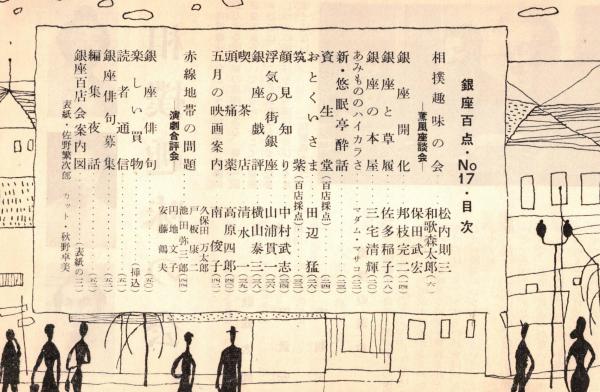 銀座百点・No17・目次
相撲趣味の会
―薫風座談会―
松内則三
和歌森太郎
保田武宏
(六)
銀座開化
邦枝完二
銀座と草履
佐多稲子
銀座の本屋
三宅清輝
あみもののハイカラさ
マダム・マサコ
新・悠眠亭酔話
資生堂
(百店採点)
おとくいさま
田辺猛
筑紫
(百店採点)
顔見知り
中村武志
浮気の街銀座
山浦貫一
銀座戯評
横山泰三
喫茶店
清水一
頭痛薬
高原四郎
五月の映画案内
南俊子
赤線地帯の問題
―演劇合評会―
久保田万太郎
戸板康二
池田弥三郎
円地文子
安藤鶴夫
銀座俳句
楽しい買物
(挿込)
読者通信
銀座俳句募集
編集夜話
銀座百店会案内図
(表紙の三)
表紙・佐野繁次郎 カット・秋野卓美